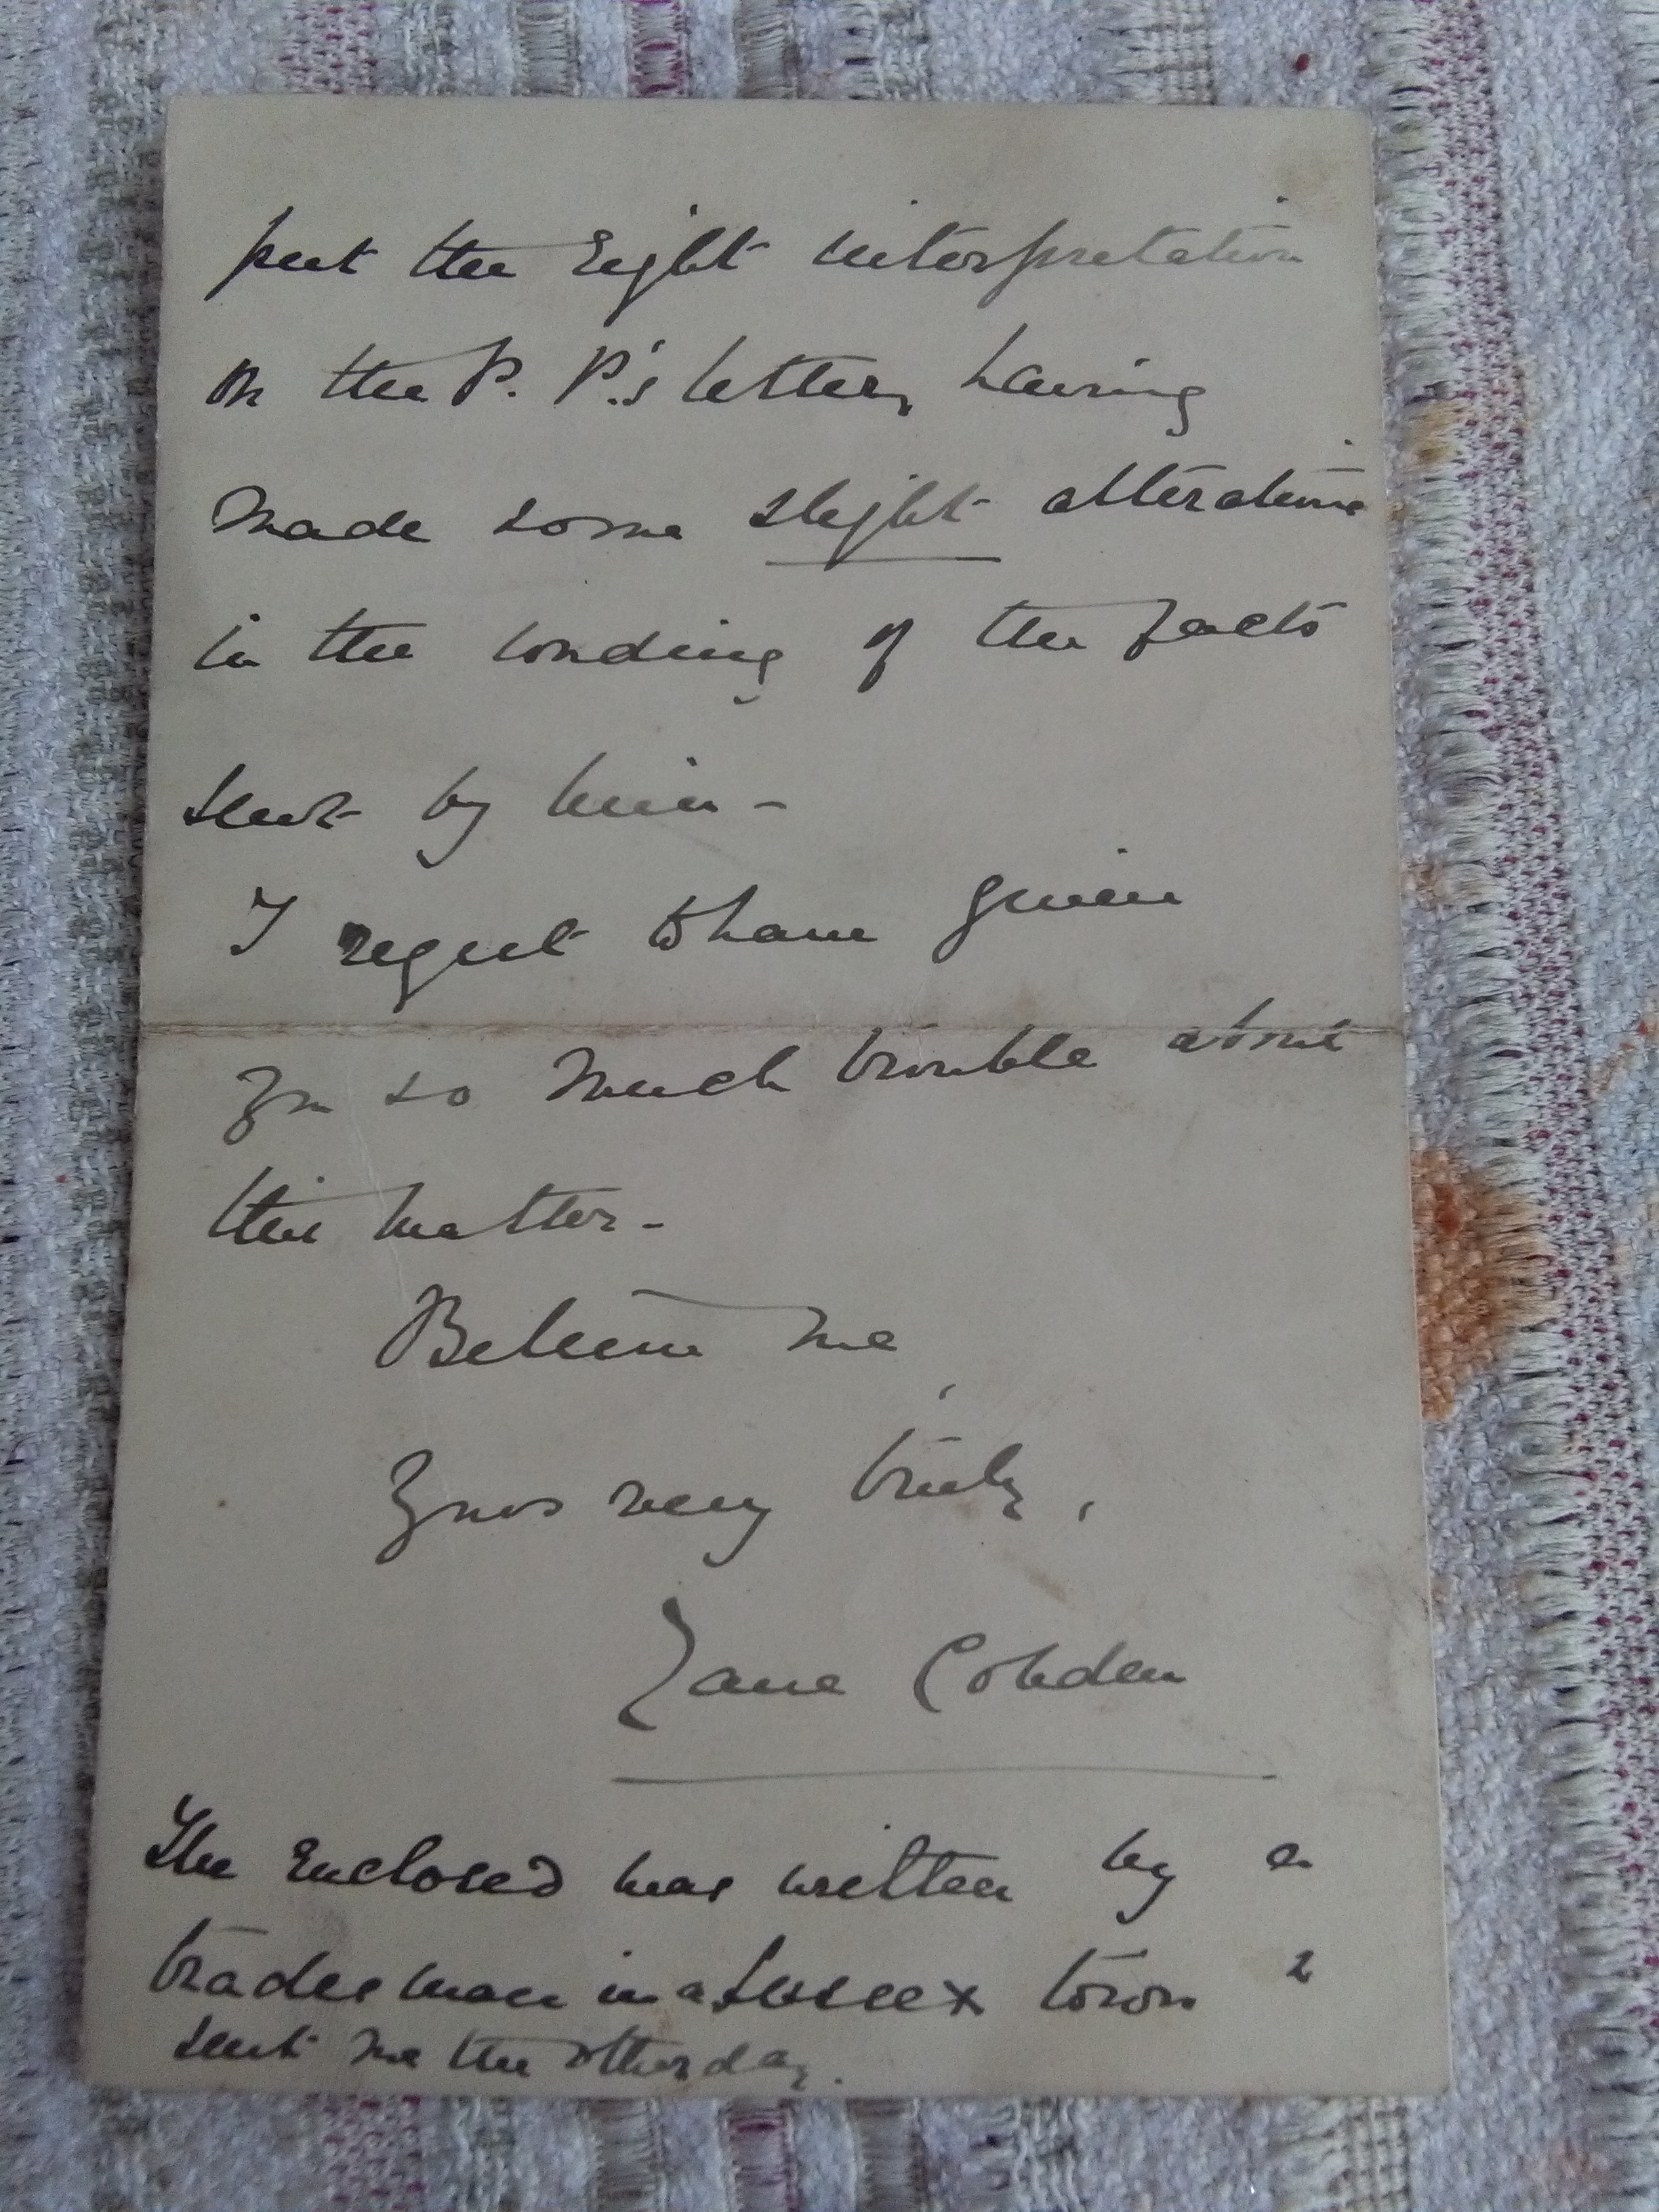 put the right interpretation
on the P. P.'s letter, having
made some slight alterations
in the wording of the facts
sent by him -
I regret to have given
you so much trouble about
this matter -
Believe me,
Yours very truly,
Jane Cobden
The enclosed was written by a
tradesman in a Sussex town &
sent me the other day.